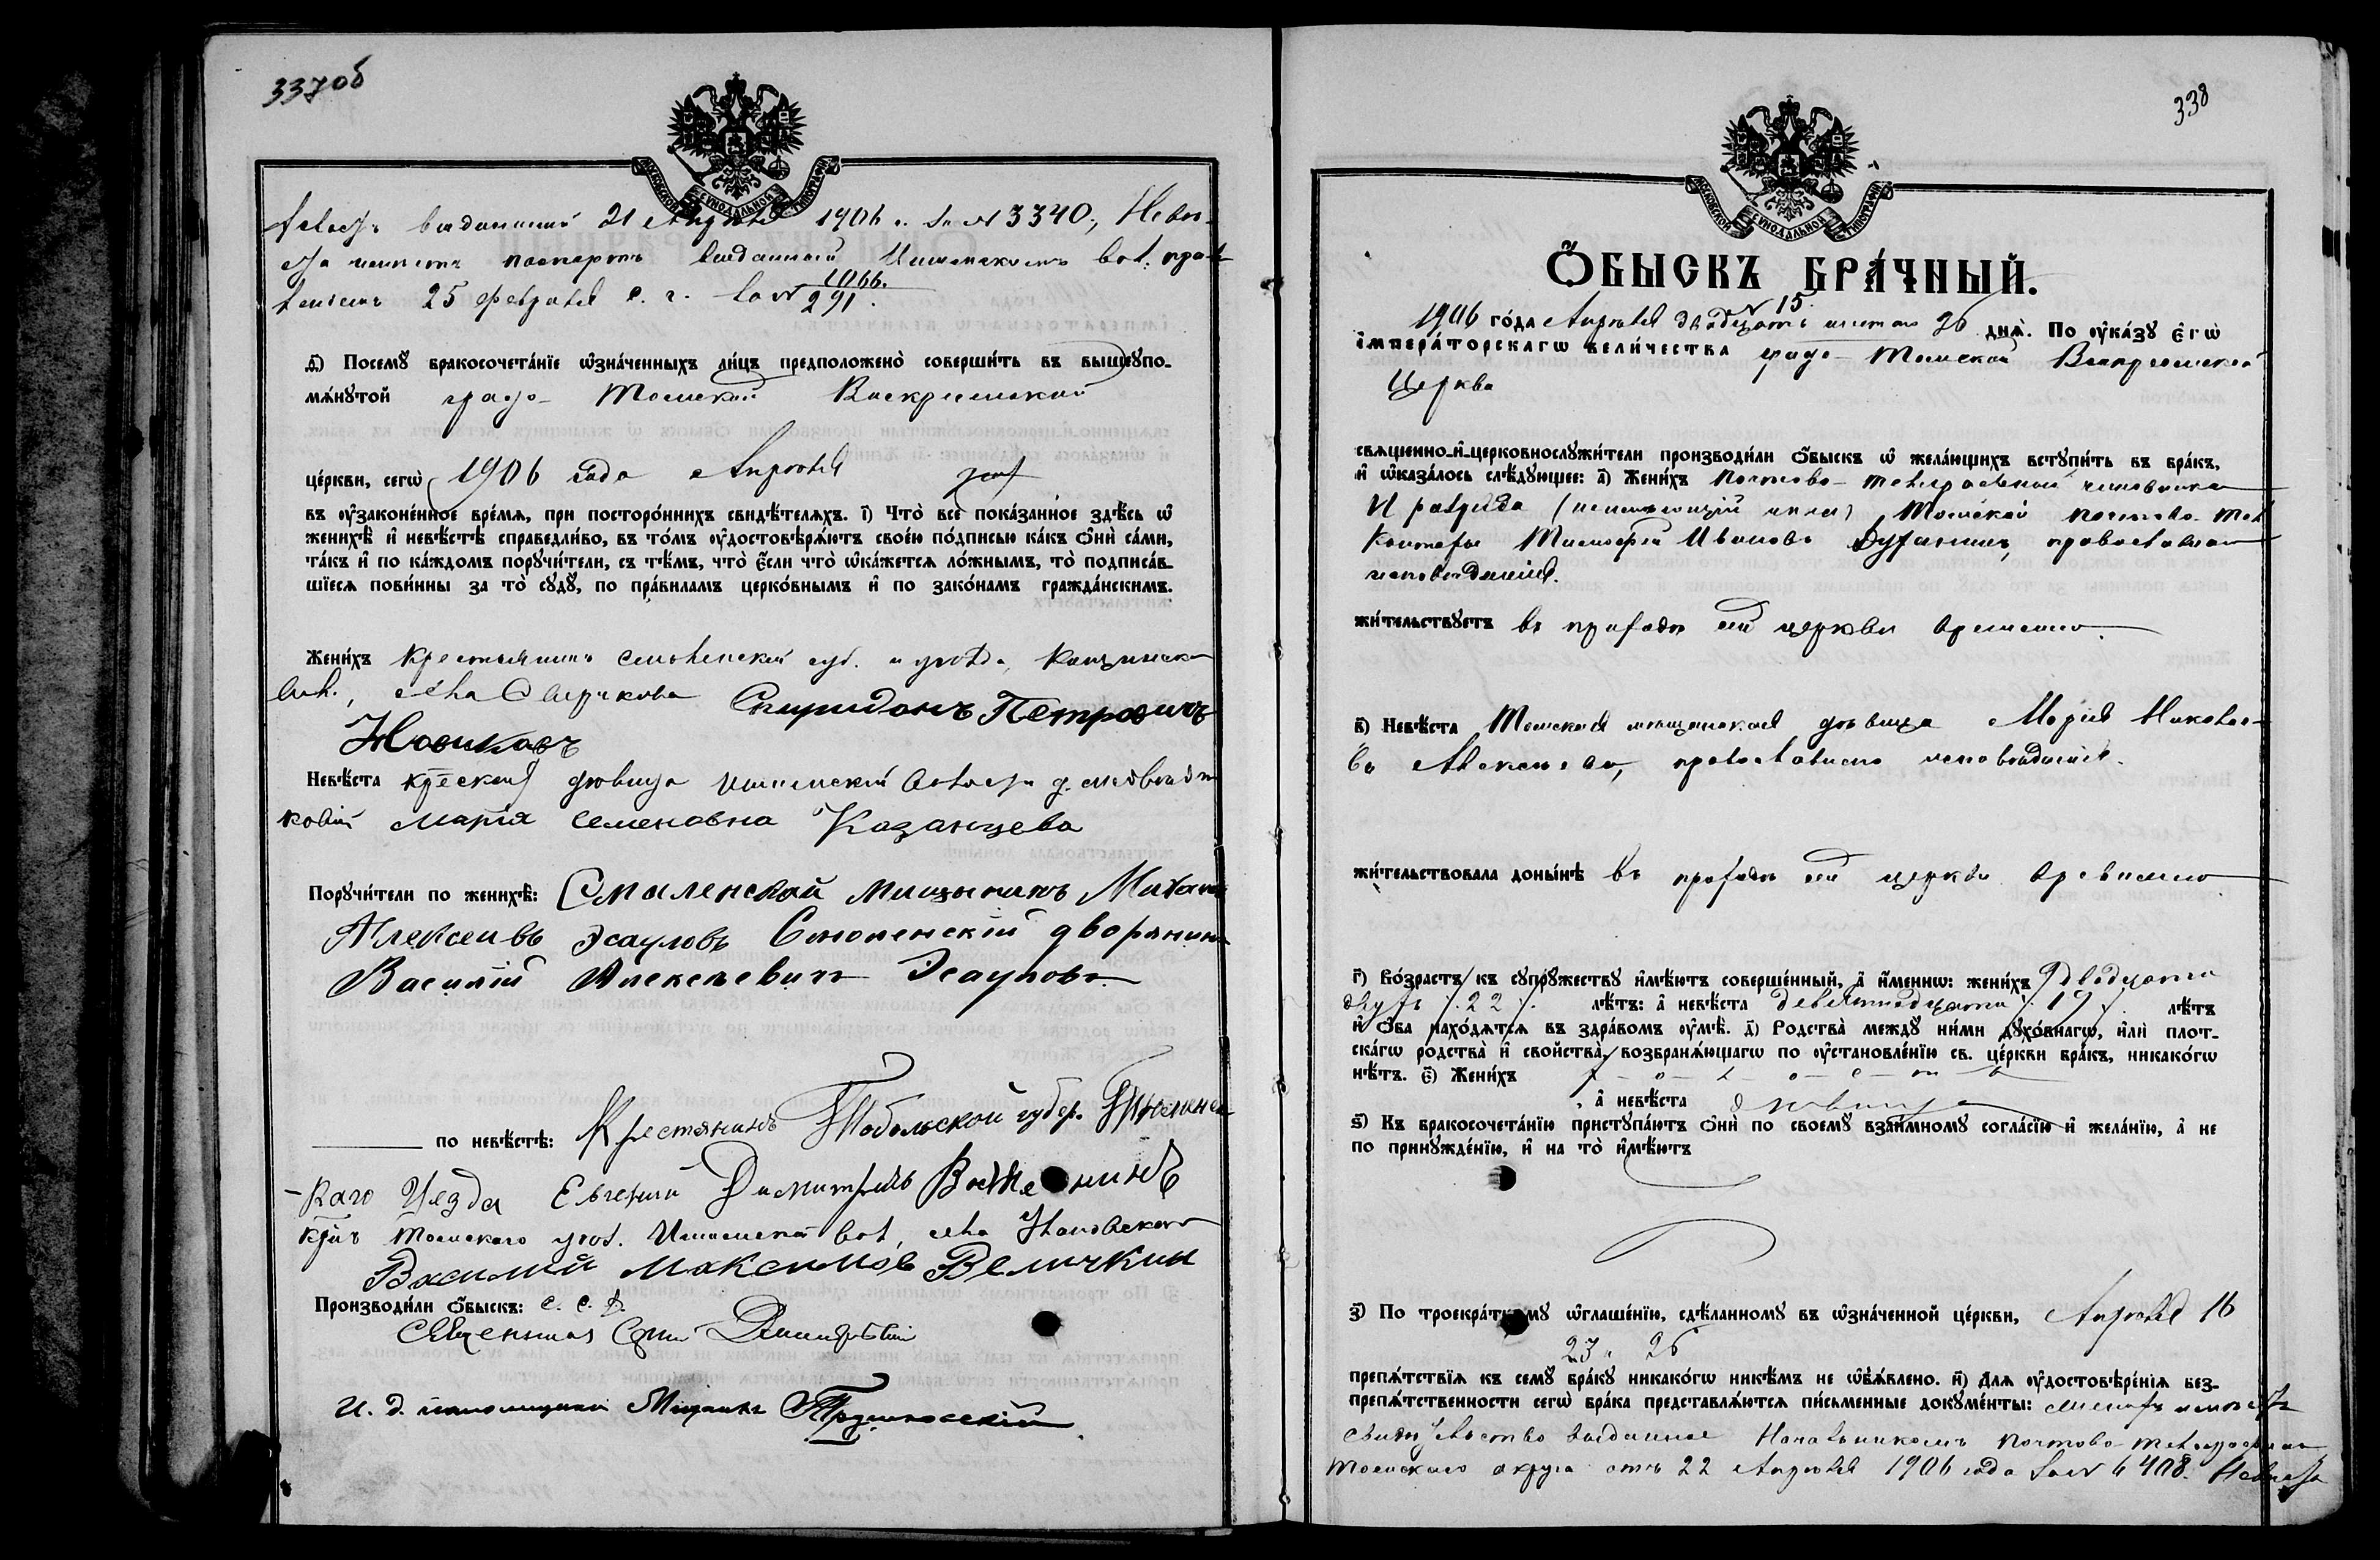 337об
МОСКОВСКОЙ СѴНОДАЛЬНОЙ ТИПОГРАФІИ
выданный 21 Апрѣля 1906 г. за № 3340; Невѣ-
ста имѣетъ паспортъ выданный Ишимскимъ вол. прав-
леніемъ 25 февраля с. г. за № 1066/291.
д҃) Посемꙋ̀ бракосочета́нїе ѡ҆зна́ченныхъ ли́цъ предположено̀ соверши́ть въ вышеꙋпо-
мѧ́нꙋтой градо-Томской Воскресенской
це́ркви, сегѡ̀ 1906 года Апрѣля
въ ᲂу҆зако́ненное вре́мѧ, при посторо́ннихъ свидѣ́телѧхъ. і҃) Что̀ всѐ пока́занное здѣ́сь ѡ҆
женихѣ̀ и҆ невѣ́стѣ справедли́во, въ то́мъ ᲂу҆достовѣрѧ́ютъ свое́ю по́дписью ка́къ ѻ҆нѝ са́ми,
та́къ и҆ по ка́ждомъ порꙋчи́тели, съ тѣ́мъ, что̀ є҆́сли что̀ ѡ҆ка́жетсѧ ло́жнымъ, то̀ подписа́в-
шїесѧ пови́нны за то̀ сꙋдꙋ̀, по пра́виламъ церко́внымъ и҆ по зако́намъ гражда́нскимъ.
Жени́хъ Крестьянинъ Смоленской губ. и уѣзда,
вол., села Спиридонъ Петровичъ
Новиковъ
Невѣ́ста кр̄еская дѣвица Ишимской волости д.
Марія Семеновна Казанцева
Порꙋчи́тели по женихѣ̀: Смаленскай мищынинъ
Алексеивъ Эсауловъ Смоленскій дворянинъ
Василій Алексѣевичъ Эсауловъ
по невѣ́стѣ: Крестянинъ Тобольской губер. Тюменс-
каго Уезда Евгений Димитріевъ
кр̄нъ Томскаго уѣз. Ишимской вол, села
Василий Максимов Величкин
Производи́ли ѻ҆́быскъ: С. С. Д.
Священникъ
И. д. псаломщика Михаилъ
338
МОСКОВСКОЙ СѴНОДАЛЬНОЙ ТИПОГРАФІИ
Ѻ҆́БЫСКЪ БРА́ЧНЫЙ.
№ 15.
1906 го́да Апрѣля двадцать шестаго 26 днѧ̀. По ᲂу҆ка́зꙋ є҆гѡ̀
і҆мпера́торскагѡ вели́чества градо-Томской Воскресенской
Церкви
свѧще́нно-и҆-церковнослꙋжи́тели производи́ли ѻ҆́быскъ ѡ҆ жела́ющихъ встꙋпи́ть въ бра́къ,
и҆ ѡ҆каза́лось слѣ́дꙋющее: а҃) Жени́хъ Почтово-телеграфный чиновникъ
VI разряда (неимѣющій чина) Томской почтово-тел.
Конторы Тимофей Ивановъ православнаго
исповѣданія.
жи́тельствꙋетъ въ приходѣ сей церкви временно.
в҃) Невѣ́ста Томская мѣщанская дѣвица Марія Николае-
ва Алексѣева, православнаго исповѣданія.
жи́тельствовала доны́нѣ въ приходѣ сей церкви временно
г҃) Во́зрастъ къ сꙋпрꙋ́жествꙋ и҆мѣ́ютъ соверше́нный, а҆ и҆́меннѡ: жени́хъ двадцати
двухъ /22/ лѣ́тъ: а҆ невѣ́ста девятнадцати /19/ лѣ́тъ
и҆ ѻ҆́ба нахо́дѧтсѧ въ здра́вомъ ᲂу҆мѣ̀. д҃) Родства̀ междꙋ̀ ни́ми дꙋхо́внагѡ, и҆лѝ плот-
ска́гѡ родства̀ и҆ свойства̀, возбранѧ́ющагѡ по ᲂу҆становле́нїю св. це́ркви бра́къ, никако́гѡ
нѣ́тъ. є҃) Жени́хъ холостъ
, а҆ невѣ́ста дѣвица
ѕ҃) Къ бракосочета́нїю пристꙋпа́ютъ ѻ҆нѝ по своемꙋ̀ взаи́мномꙋ согла́сїю и҆ жела́нїю, а҆ не
по принꙋжде́нїю, и҆ на то̀ и҆мѣ́ютъ
з҃) По троекра́тномꙋ ѡ҆глаше́нїю, сдѣ́ланномꙋ въ ѡ҆зна́ченной це́ркви, Апрѣля 16
23 и 26
препѧ́тствїѧ къ семꙋ̀ бра́кꙋ никако́гѡ никѣ́мъ не ѡ҆б̾ѧ́влено. и҃) Длѧ ᲂу҆достовѣре́нїѧ без-
препѧ́тственности сегѡ̀ бра́ка представлѧ́ютсѧ пи́сьменные докꙋме́нты: Женихъ имѣетъ
свидѣтельство выданное Начальникомъ почтово-телеграфнаго
Томскаго округа отъ 22 Апрѣля 1906 года за № 6408. Невѣста